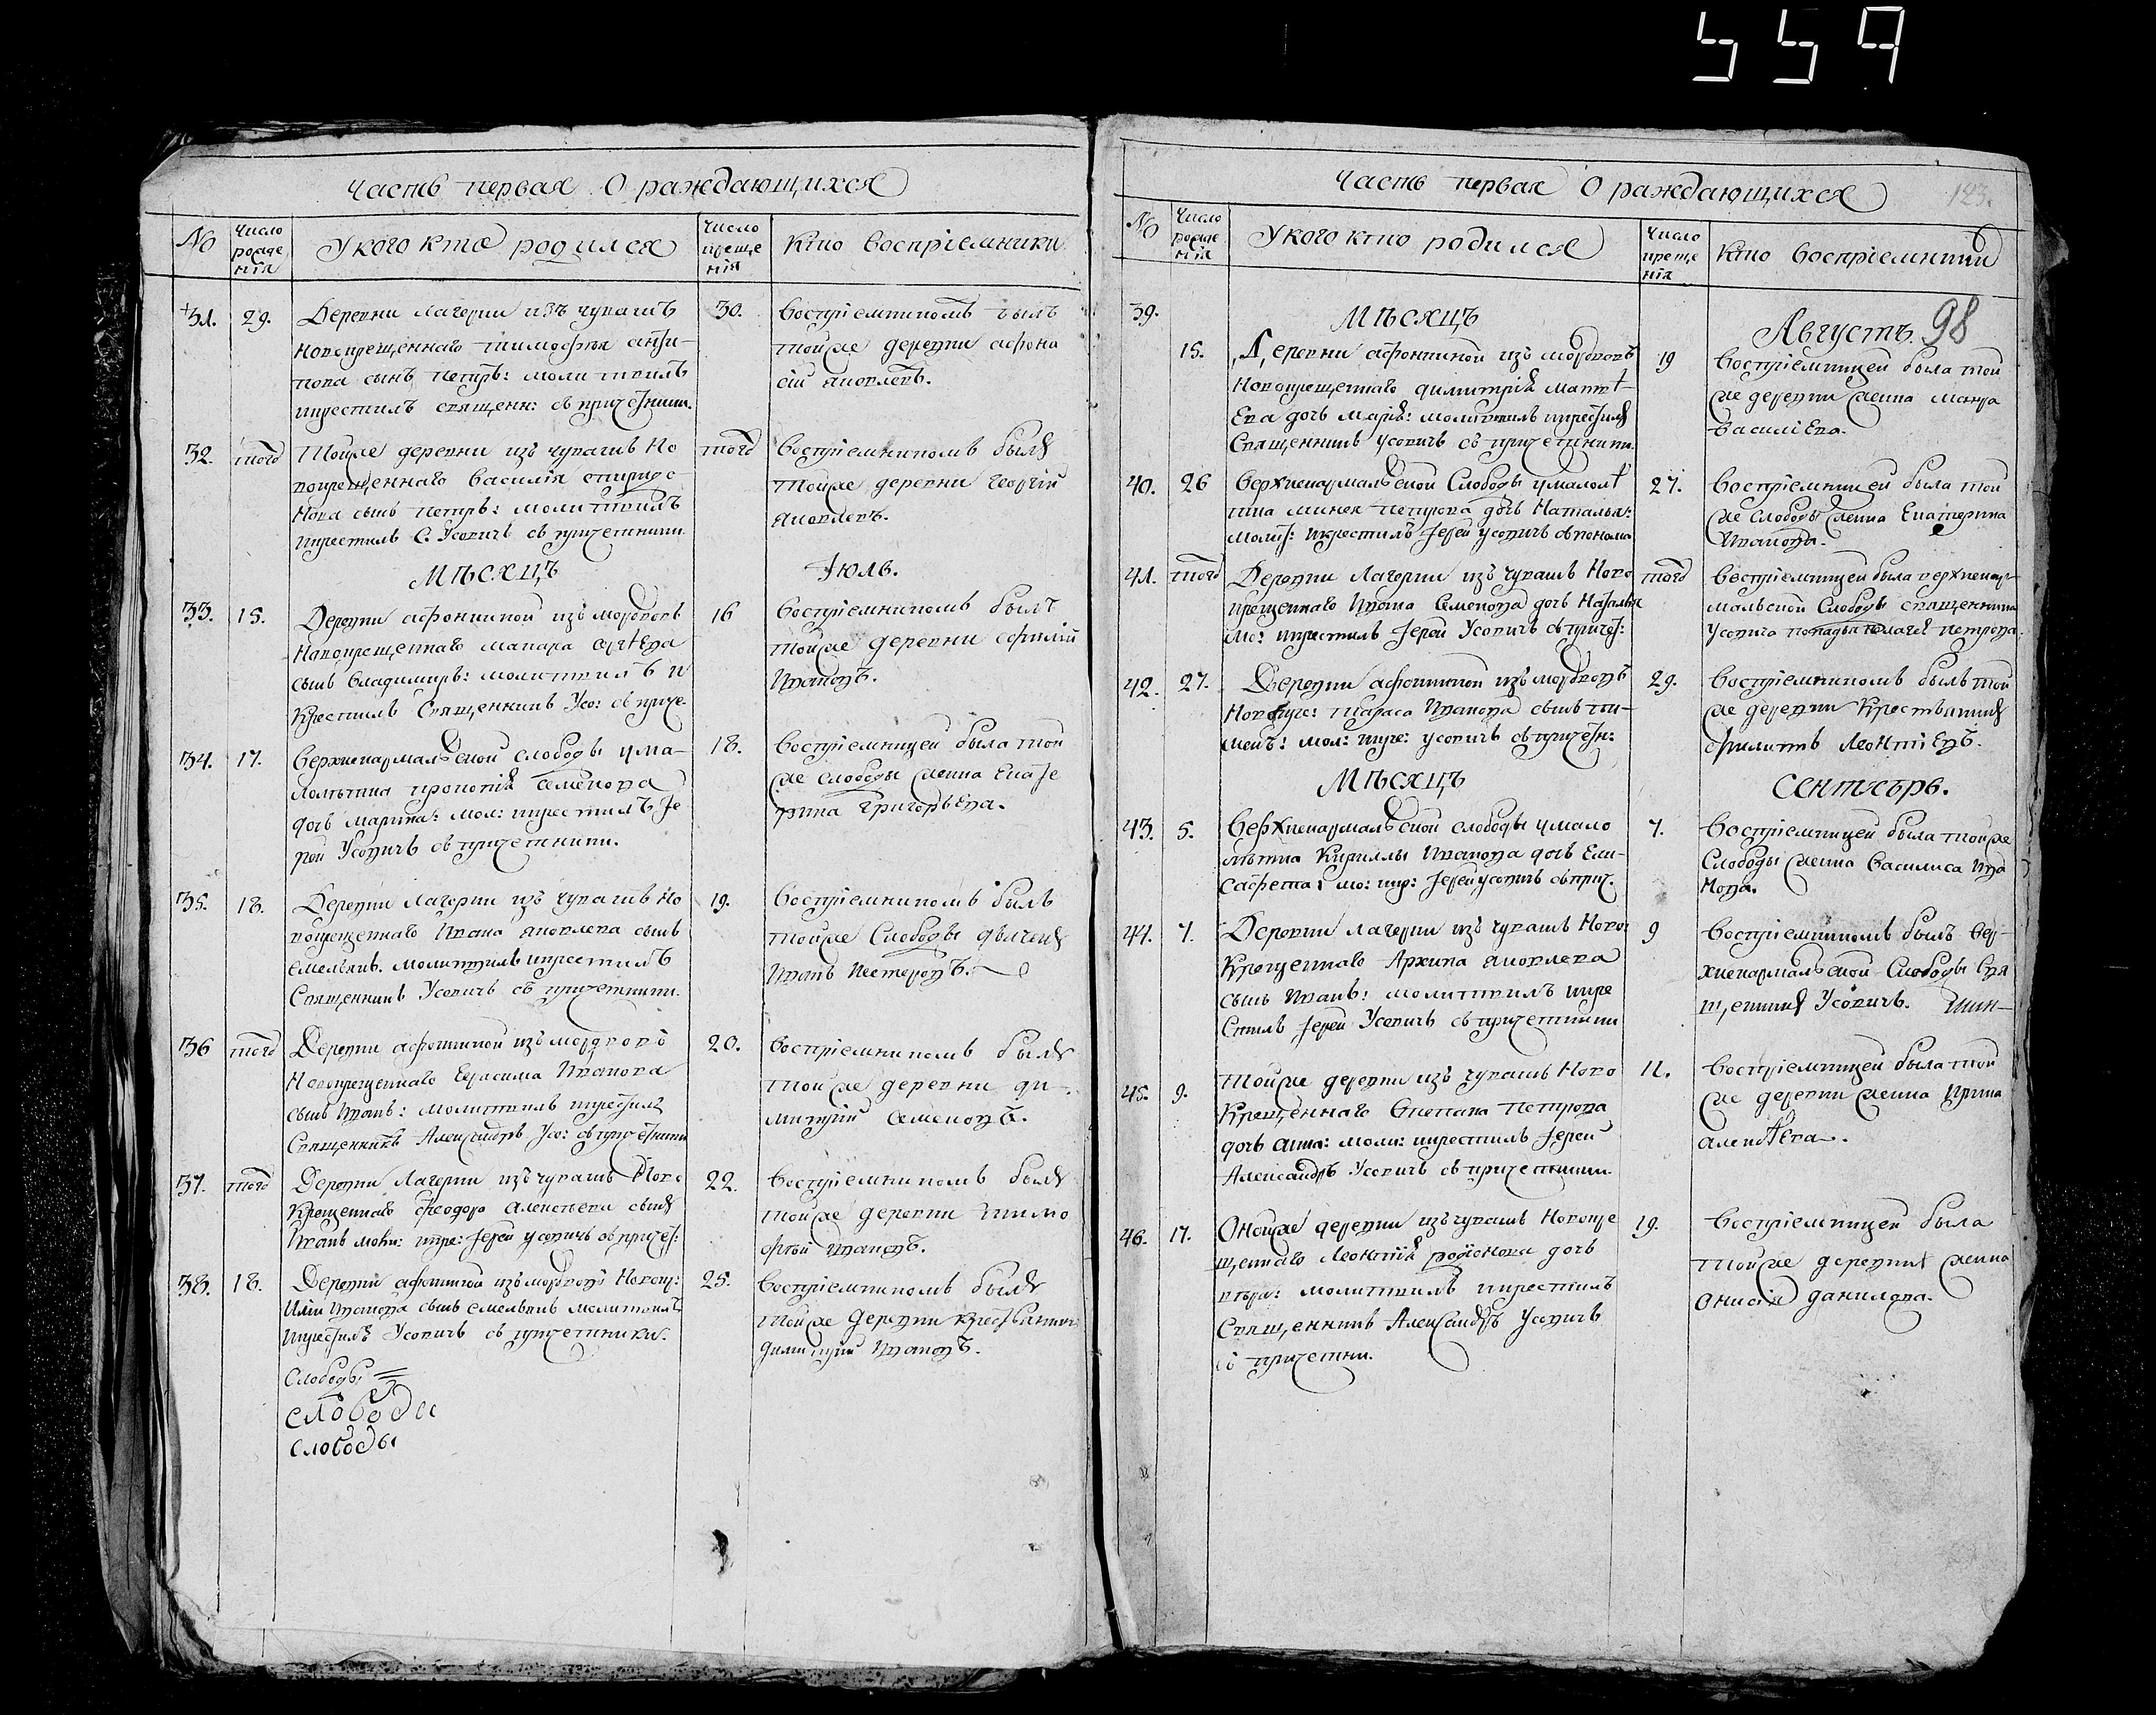 559
Часть первая О раждающихся
№
Число рожде нїя
У кого кто родился
Число креще нїя
Кто воспрїемники
31. 29.
Деревни Лагерки изъ чувашъ
новокрещеннаго Тимофея
сынъ Петръ: молитвилъ
икрестилъ священн: съ причетники.
30.
Воспрїемникомъ былъ
тойже деревни Афона
сїй Яковлевъ.
32. тогo
Тойже деревни изъ чувашъ Но
вокрещеннаго Василїя Спиридо
нова сынъ Петръ: молитвилъ
икрестилъ С. Усовичъ съ причетники
тогo
Воспрїемникомъ былъ
тойже деревни Георгїй
Яковлевъ.
Мѣсяцъ
Іюль.
33. 15.
Деревни Афонкиной изъ мордвовъ
Новокрещеннаго Макара
сынъ Владимиръ: молитвилъ и
крестилъ Священникъ Усо: съ приче
16
Воспрїемникомъ былъ
тойже деревни
Ивановъ.
34. 17.
Верхнекармальской слободы у ма-
лолѣтка Прокопїя Семенова
дочь Марина: мол: икрестилъ Іе
рей Усовичъ съ причетники.
18.
Воспрїемницей была той
же слободы женка Екате
рина Григорьева.
35. 18.
Деревни Лагерки изъ чувашъ Но
вокрещеннаго Ивана Яковлева сынъ
Емельянъ. молитвилъ икрестилъ
Священникъ Усовичъ съ причетники.
19.
Воспрїемникомъ былъ
тойже Слободы дьячекъ
Иванъ Нестеровъ.
36 тогo
Деревни Афонкиной изъ мордвовъ
Новокрещеннаго Герасима Иванова
сынъ Иванъ: молитвилъ икрестилъ
Священникъ Александръ Усо: съ причетники
20.
Воспрїемникомъ былъ
тойже деревни Ди-
митрїй Семеновъ.
37. тогo
Деревни Лагерки изъ чувашъ Ново
крещеннаго Феодора Алексѣева сынъ
Иванъ моли: икре: Іерей Усовичъ съ причет:
22.
Воспрїемникомъ былъ
тойже деревни Тимо
фей Ивановъ.
38. 18.
Деревни Афонкиной изъ мордвовъ Новокр:
Илїи Иванова сынъ Емельянъ молитвилъ
икрестилъ Усовичъ съ причетники.
25.
Воспрїемникомъ былъ
тойже деревни крестьянинъ
Димитрїй Ивановъ.
Слободы
слободы
слободы
Часть первая О раждающихся
123.
№
Число рожде нїя
У кого кто родился
Число креще нїя
Кто воспрїемники
39.
Мѣсяцъ
Августъ. 98
15.
Деревни Афонкиной изъ мордвовъ
Новокрещеннаго Димитрїя Матвѣ
ева дочь Марїя: молитвилъ икрестилъ
Священникъ Усовичъ съ причетники.
19
Воспрїемницей была той
же деревни женка Мавра
Василїева.
40. 26
Верхнекармальской Слободы у малолѣ
тка Петрова дочь Наталья:
молит: икрестилъ Іерей Усовичъ съ
27.
Воспрїемницей была той
же Слободы женка Екатерина
Иванова.
41. тогo
Деревни Лагерки изъ чувашъ Ново
крещеннаго Ивана Семенова дочь Наталья
мо: икрестилъ Іерей Усовичъ съ причет:
тогo
Воспрїемницей была верхнекар-
мальской Слободы священника
Усовича попадья Пелагея Петрова.
42. 27.
Деревни Афонкиной изъ мордвовъ
Новокре: Тараса Иванова сынъ
мол: икре: Усовичъ съ причетн:
29.
Воспрїемникомъ былъ той
же деревни Крестьянинъ
Филипъ Леонтїевъ.
Мѣсяцъ
Сентябрь.
43. 5.
Верхнекармальской слободы у мало
лѣтка Кириллы Иванова дочь Ели-
савета: мо: икр: Іерей Усовичъ съ прич.
7.
Воспрїемницей была тойже
Слободы женка Василиса Ива
нова.
44. 7.
Деревни Лагерки изъ чувашъ Ново
Крещеннаго Архипа Яковлева
сынъ Иванъ: молитвилъ икре
стилъ Іерей Усовичъ съ причетники
9
Воспрїемникомъ былъ Вер-
хнекармальской Слободы Свя
щенникъ Усовичъ.
45. 9.
Тойже деревни изъ чувашъ Ново
Крещеннаго Степана Петрова
дочь Анна: моли: икрестилъ Іерей
Александръ Усовичъ съ причетники.
11.
Воспрїемницей была той
же деревни женка Ирина
Алексѣева.
46. 17.
Онойже деревни изъ чувашъ Новокре
щеннаго Леонтїя Родїонова дочь
молитвилъ икрестилъ
Священникъ Александръ Усовичъ
съ причетни.
19.
Воспрїемницей была
тойже деревни женка
Онисїя Данилова.